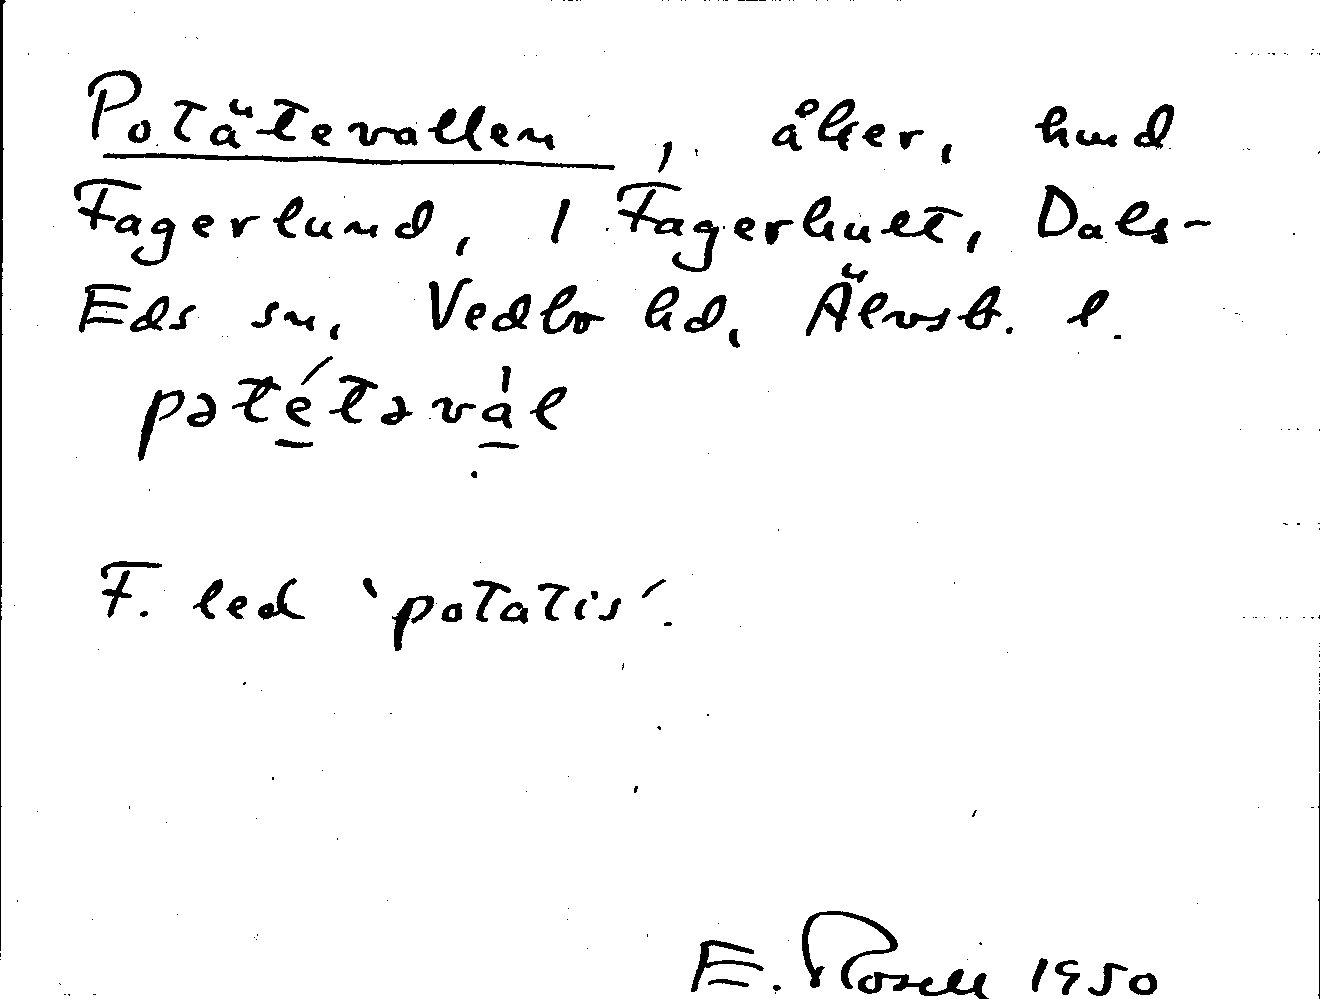 Potätevallen, åker, hmd
Fagerlund, 1 Fagerhult, Dals-
Eds sn, Vedbo hd, Älvsb. l.
pəté̱təvà̱l
F. led 'potatis'.
E. Rosell 1950